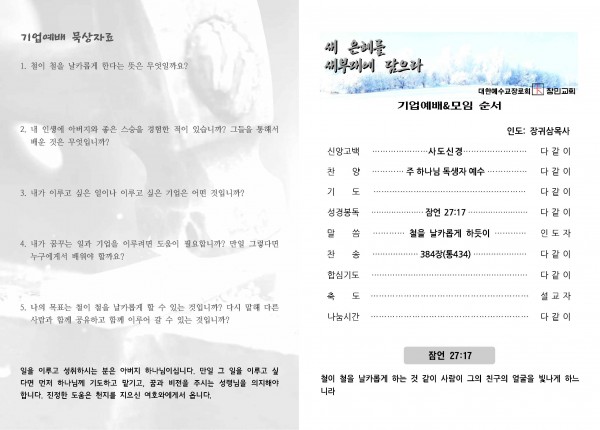 기업예배 묵상자료
1. 철이 철을 날카롭게 한다는 뜻은 무엇일까요?
2. 내 인생에 아버지와 좋은 스승을 경험한 적이 있습니까? 그들을 통해서
배운 것은 무엇입니까?
3. 내가 이루고 싶은 일이나 이루고 싶은 기업은 어떤 것입니까?
4. 내가 꿈꾸는 일과 기업을 이루려면 도움이 필요합니까? 만일 그렇다면
누구에게서 배워야 할까요?
5. 나의 목표는 철이 철을 날카롭게 할 수 있는 것입니까? 다시 말해 다른
사람과 함께 공유하고 함께 이루어 갈 수 있는 것입니까?
일을 이루고 성취하시는 분은 아버지 하나님이십니다. 만일 그 일을 이루고 싶
다면 먼저 하나님께 기도하고 맡기고, 꿈과 비전을 주시는 성령님을 의지해야
합니다. 진정한 도움은 천지를 지으신 여호와에게서 옵니다.
새 은혜를
새부대에 담으라
대한예수교장로회 참민교회
기업예배&모임 순서
인도: 장귀삼목사
신앙고백 ··················사도신경························ 다 같 이
찬 양 ············· 주 하나님 독생자 예수 ··············· 다 같 이
기 도 ······················································ 다 같 이
성경봉독 ·················· 잠언 27:17 ····················· 다 같 이
말 씀 ·············· 철을 날카롭게 하듯이 ············ 인 도 자
찬 송 ················ 384장(통434) ···················· 다 같 이
합심기도 ······················································ 다 같 이
축 도 ······················································ 설 교 자
나눔시간 ······················································ 다 같 이
잠언 27:17
철이 철을 날카롭게 하는 것 같이 사람이 그의 친구의 얼굴을 빛나게 하느
니라